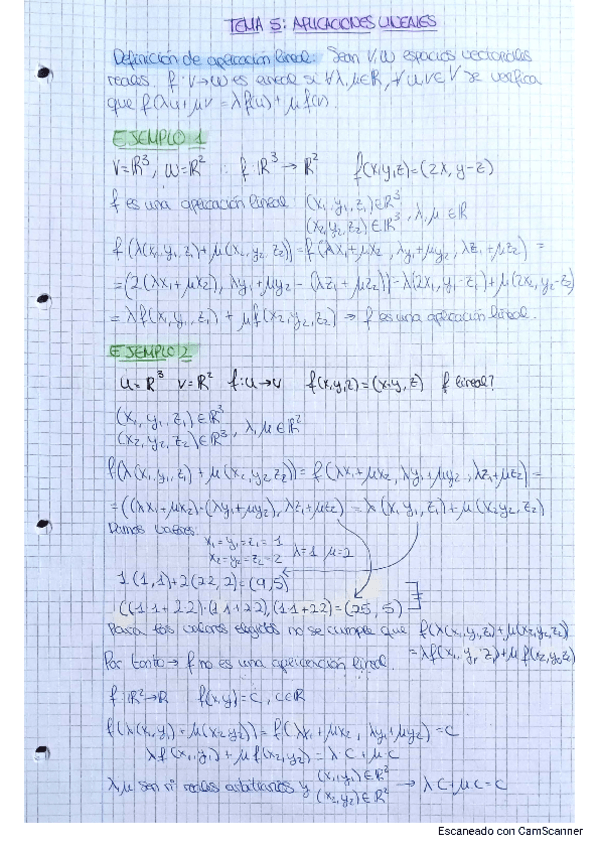 TEMA 5: APLICACIONES LINEALES
Definición de aplicación lineal: Sean V, W espacios vectoriales
reales f: V→W es lineal si ∀λ, μ∈R, ∀ u, v∈V se verifica
que f(λu + μv = λf(u) + μf(v).
EJEMPLO 1
V=R³, W=R² : f: R³→R² f(x,y,z)=(2x, y-z)
f es una aplicación lineal (x₁, y₁, z₁)∈R³
(x₂, y₂, z₂)∈R³, λ, μ∈R
f(λ(x₁, y₁, z₁)+μ(x₂, y₂, z₂))=f(λx₁+μx₂, λy₁+μy₂, λz₁+μz₂) =
=(2(λx₁+μx₂), λy₁+μy₂-(λz₁+μz₂))=λ(2x₁, y₁-z₁)+μ(2x₂, y₂-z₂)
=λf(x₁, y₁, z₁) + μf(x₂, y₂, z₂) → f es una aplicación lineal.
EJEMPLO 2
U=R³ V=R² f: U→V f(x,y,z)=(x·y, z) f lineal?
(x₁, y₁, z₁)∈R³
(x₂, y₂, z₂)∈R³, λ, μ∈R²
f(λ(x₁, y₁, z₁) + μ(x₂, y₂, z₂))=f(λx₁+μx₂, λy₁+μy₂, λz₁+μz₂)=
=((λx₁+μx₂)·(λy₁+μy₂), λz₁+μz₂) = λ(x₁·y₁, z₁)+μ(x₂y₂, z₂)
Damos valores:
x₁=y₁=z₁=1
x₂=y₂=z₂=2 λ=1 μ=2
1·(1,1)+2(2·2,2)=(9,5)
((1·1+2·2)·(1·1+2·2),(1·1+2·2)=(25,5)
Para los valores elegidos no se cumple que f(λ(x₁, y₁, z₁)+μ(x₂, y₂, z₂))
=λf(x₁, y₁, z₁)+μf(x₂, y₂, z₂)
Por tanto → f no es una aplicación lineal.
f: R²→R f(x,y)=c, c∈R
f(λ(x₁, y₁)+μ(x₂, y₂))=f(λx₁+μx₂, λy₁+μy₂)=c
λf(x₁, y₁)+μf(x₂, y₂)=λc+μc
λ, μ son nº reales arbitrarios y (x₁, y₁)∈R²
(x₂, y₂)∈R² → λc+μc=c
Escaneado con CamScanner